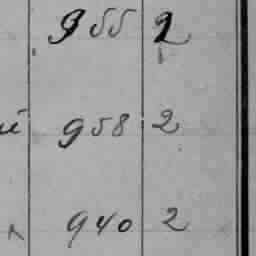 955 2
й 958 2
940 2